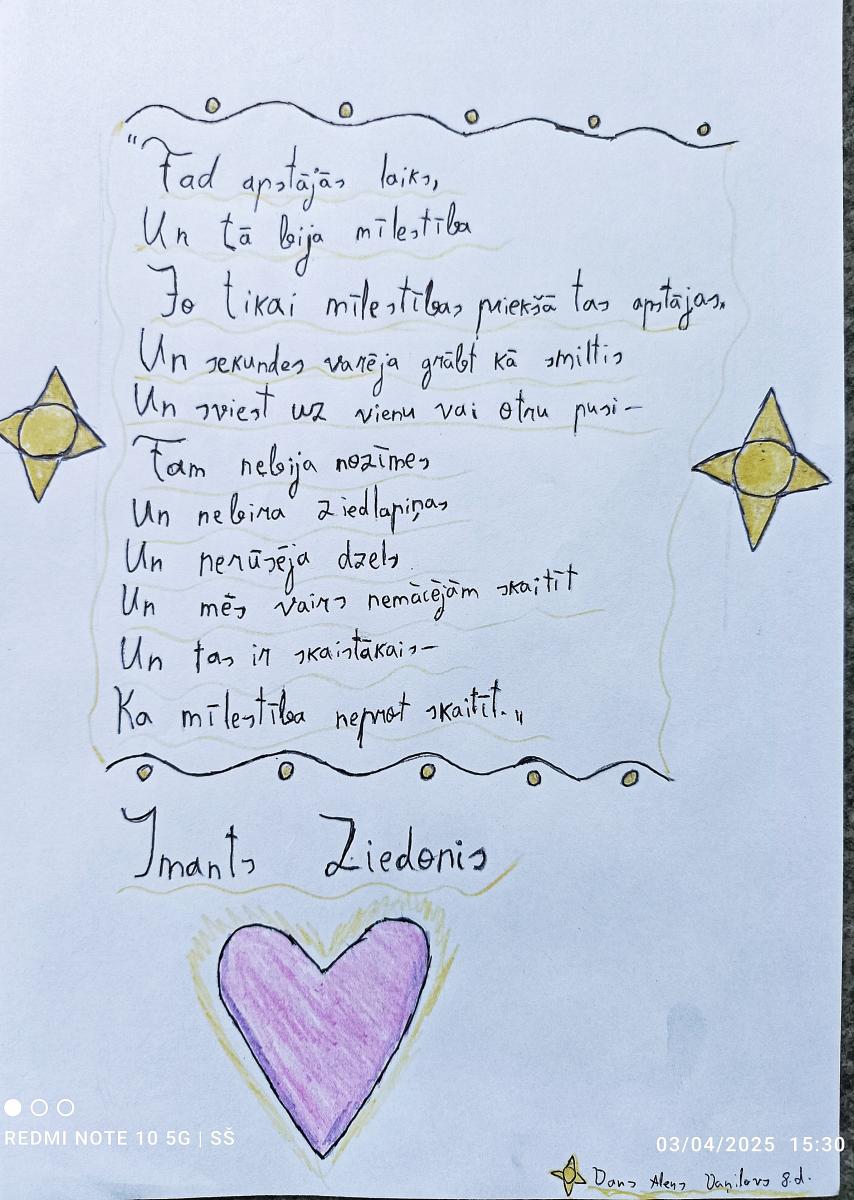 "Tad apstājās laiks,
Un tā bija mīlestība
Jo tikai mīlestības priekšā tas apstājas.
Un sekundes varēja grābt kā smiltis
Un sviest uz vienu vai otru pusi-
Tam nebija nozīmes
Un nebira ziedlapiņas
Un nerūsēja dzels
Un mēs vairs nemācējām skaitīt
Un tas ir skaistākais-
Ka mīlestība neprot skaitīt."
Imants Ziedonis
REDMI NOTE 10 5G | SŠ
03/04/2025 15:30
8.d.